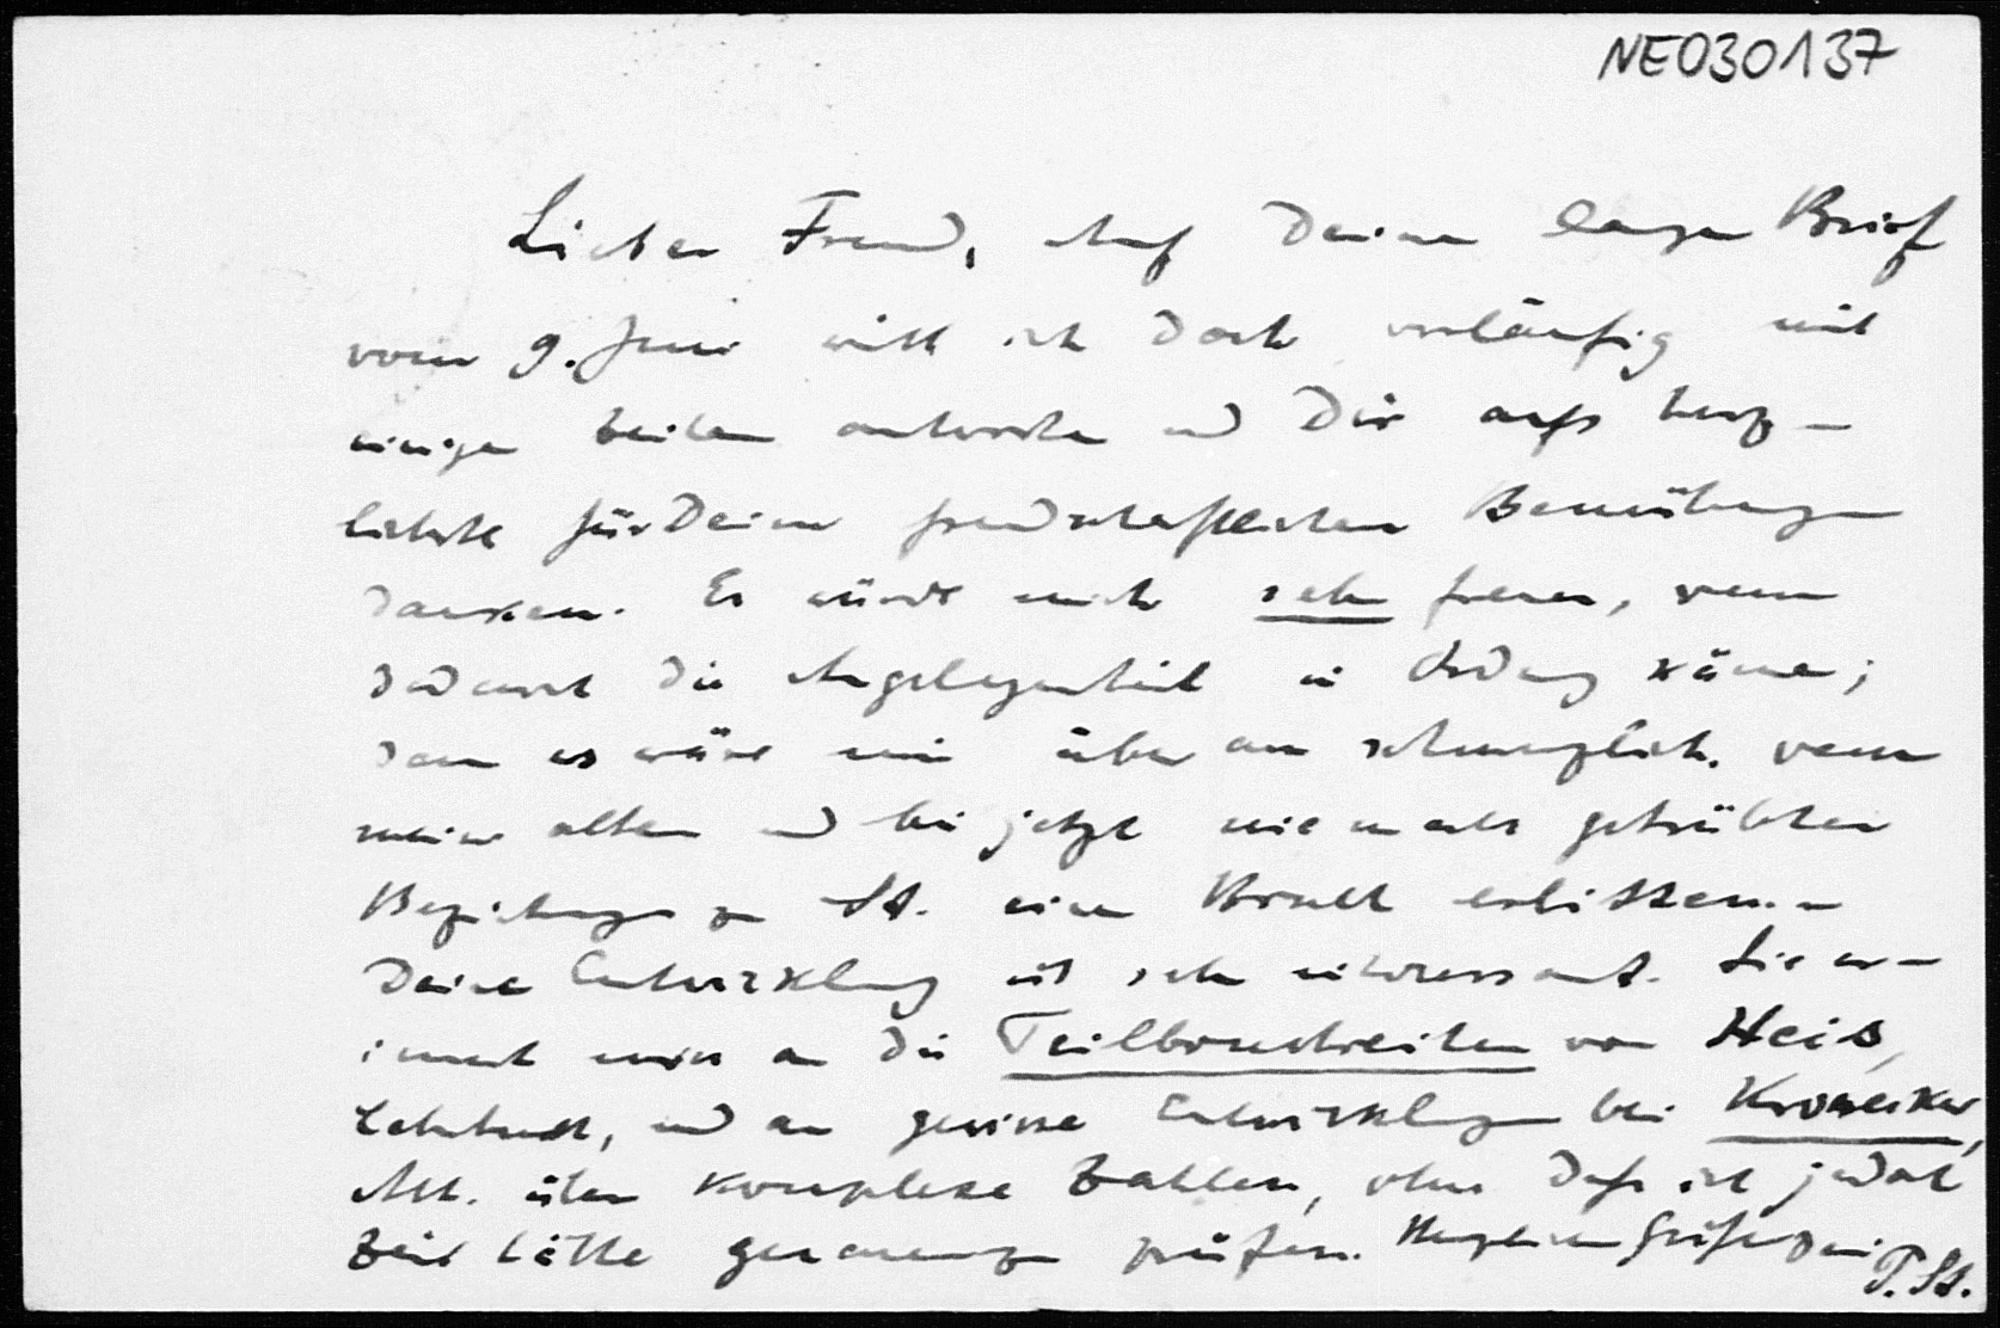 NE030137
Lieber Freund, Auf Deinen langen Brief
vom 9. Juni will ich doch vorläufig mit
einigen Zeilen antworten und Dir aufs herz-
lichste für Deine freundschaftlichen Bemühungen
danken. Es würde mich sehr freuen, wenn
dadurch die Angelegenheit in Ordnung käme;
denn es wäre mir überaus schmerzlich, wenn
meine alten und bis jetzt niemals getrübten
Beziehungen zu St. einen Bruch erlitten. –
Deine Entwicklung ist sehr interessant. Sie er-
innert mich an die Teilbruchreihen von Heis,
Lehrbuch, und an gewisse Entwicklungen bei Kronecker,
Abh. über komplexe Zahlen, ohne daß ich jedoch
Zeit hätte genauer zu prüfen. Herzlichen Gruß Dein
P. St.